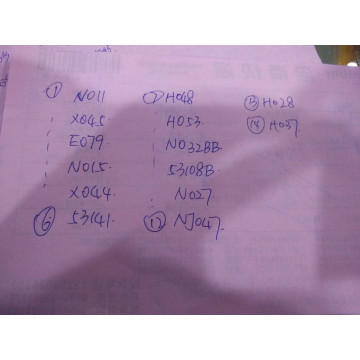 ① N011
X045
E079
N015
X044
⑥ 53141
⑦ H048
H053
N032BB
53108B
N027
⑫ NJ047
⑬ H028
⑭ H037